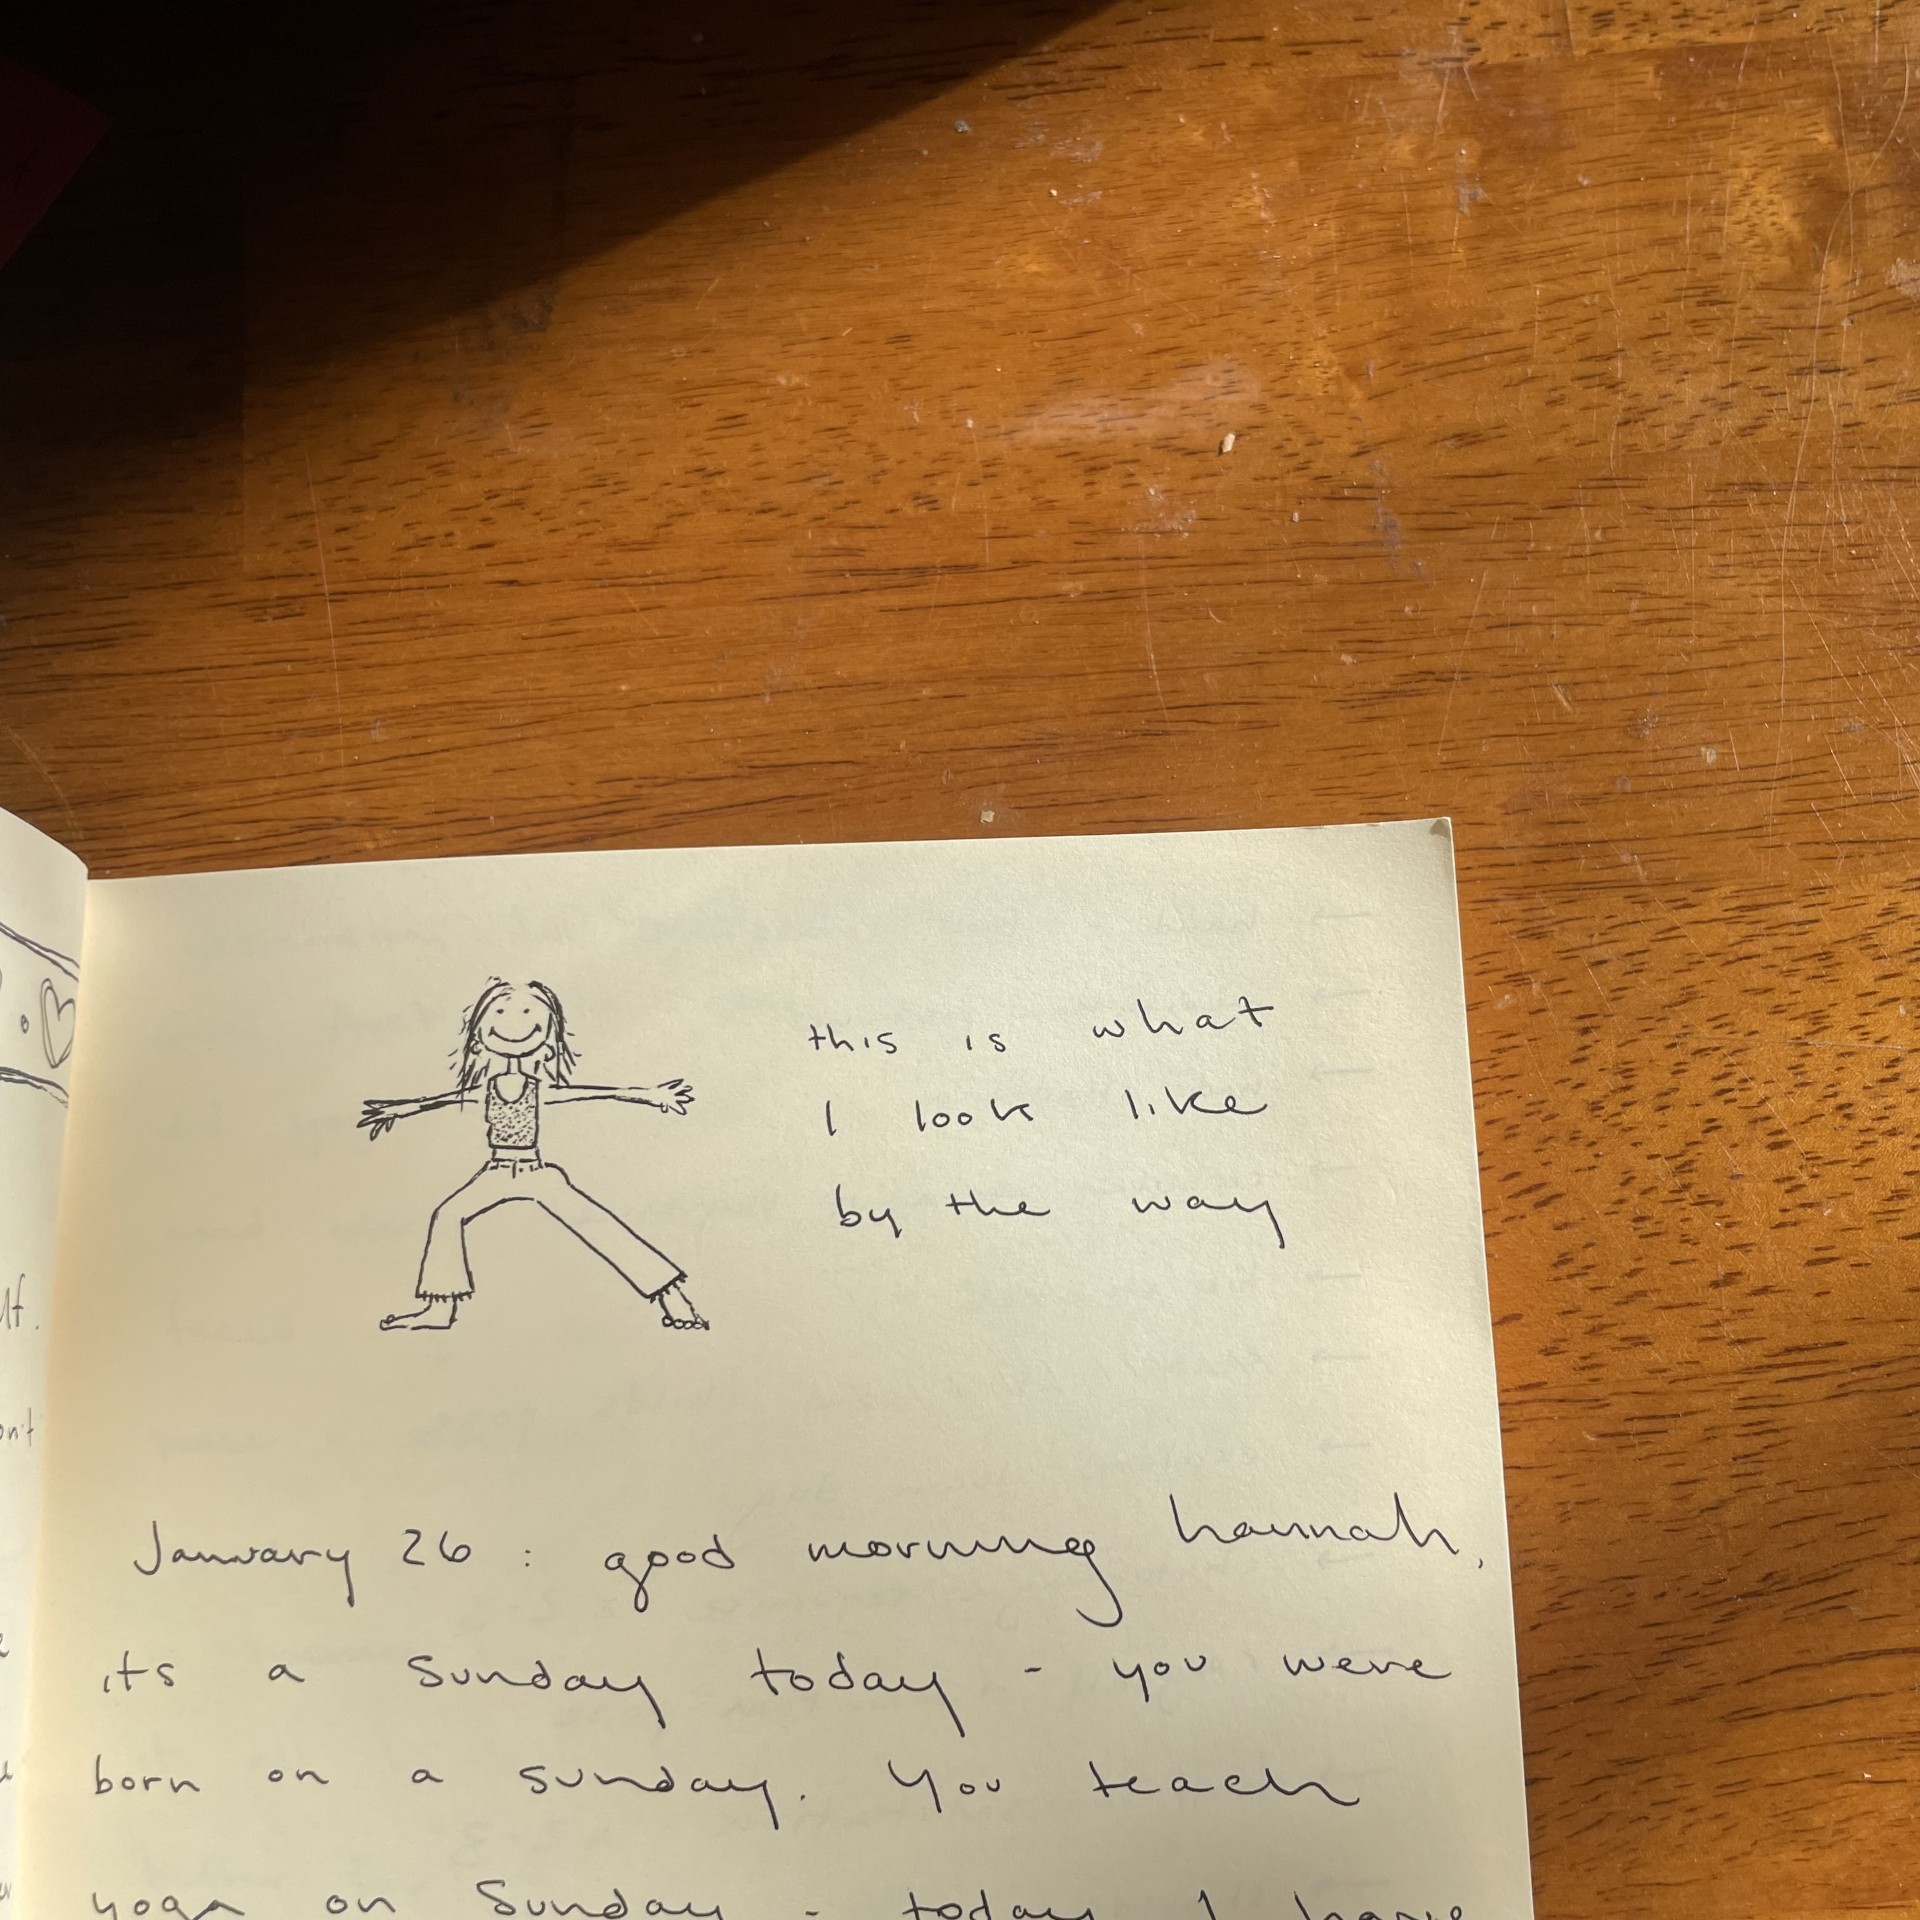 this is what
I look like
by the way
January 26 : good morning hannah.
its a sunday today - you were
born on a sunday. You teach
yoga on Sunday - today I have
ont